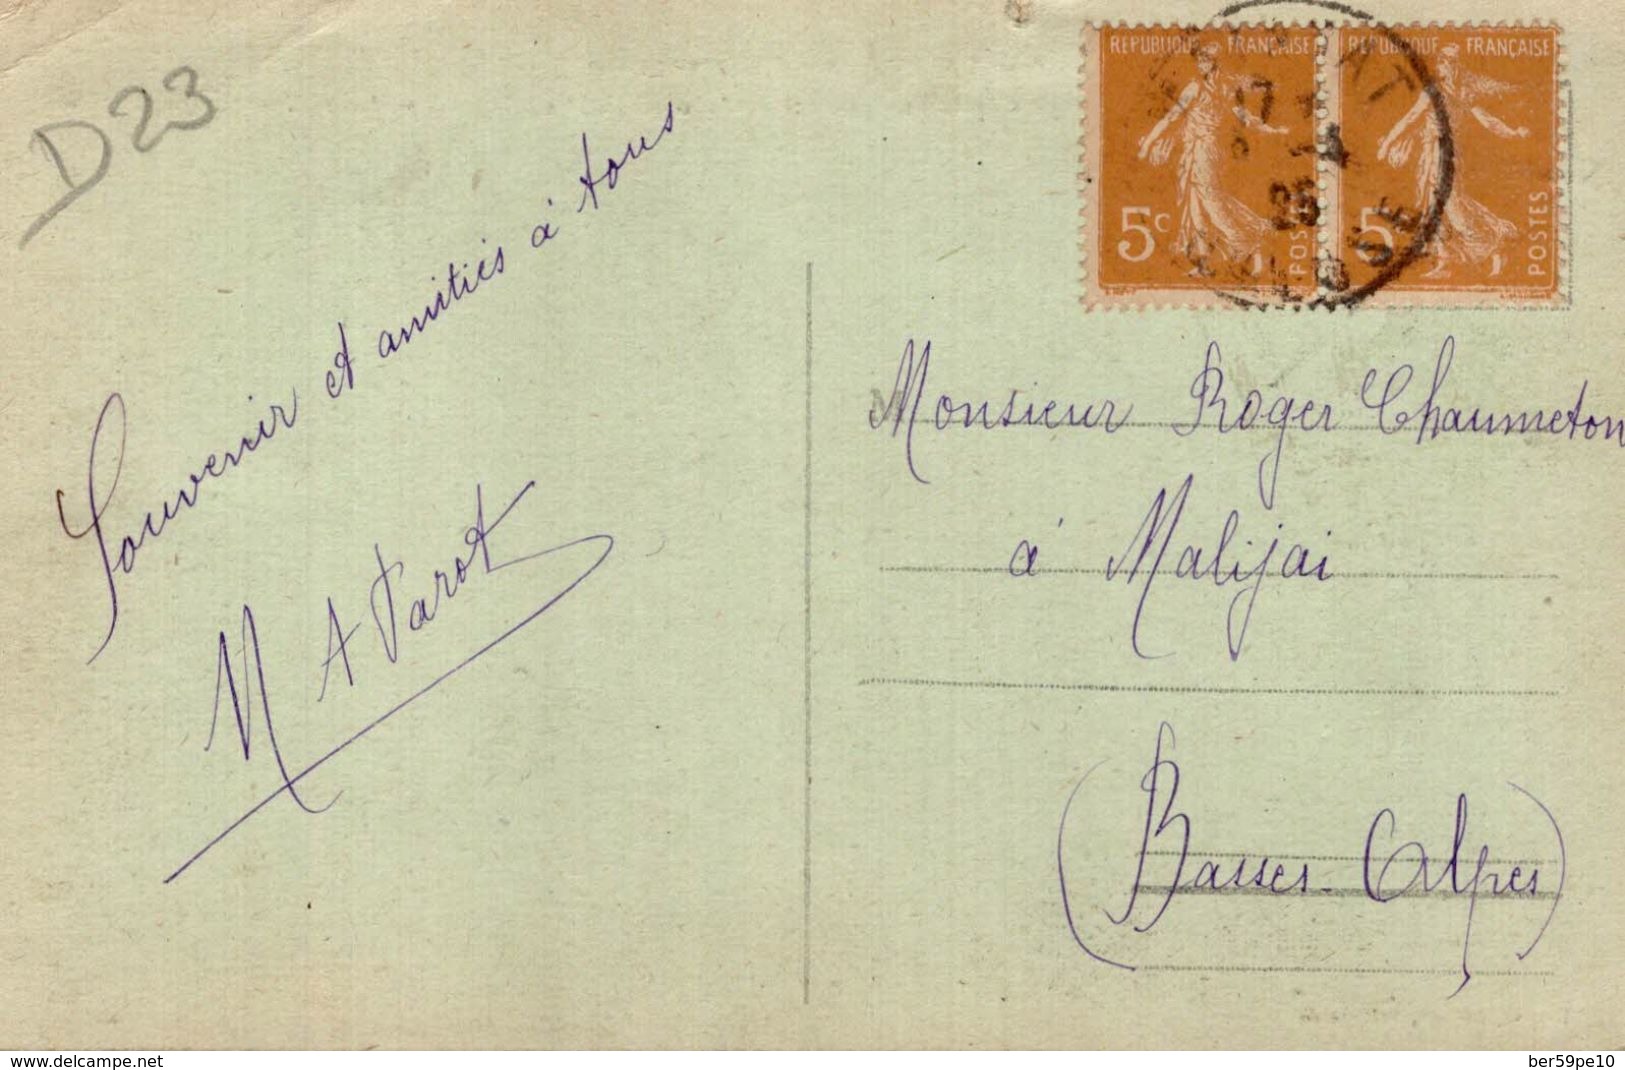 D23
REPUBLIQUE FRANÇAISE
5c
POSTES
REPUBLIQUE FRANÇAISE
5c
POSTES
17
25
CREUSE
Souvenir et amitiés à tous
M A Parot
Monsieur Roger Chaumeton
à Malijai
(Basses-Alpes)
www.delcampe.net
ber59pe10